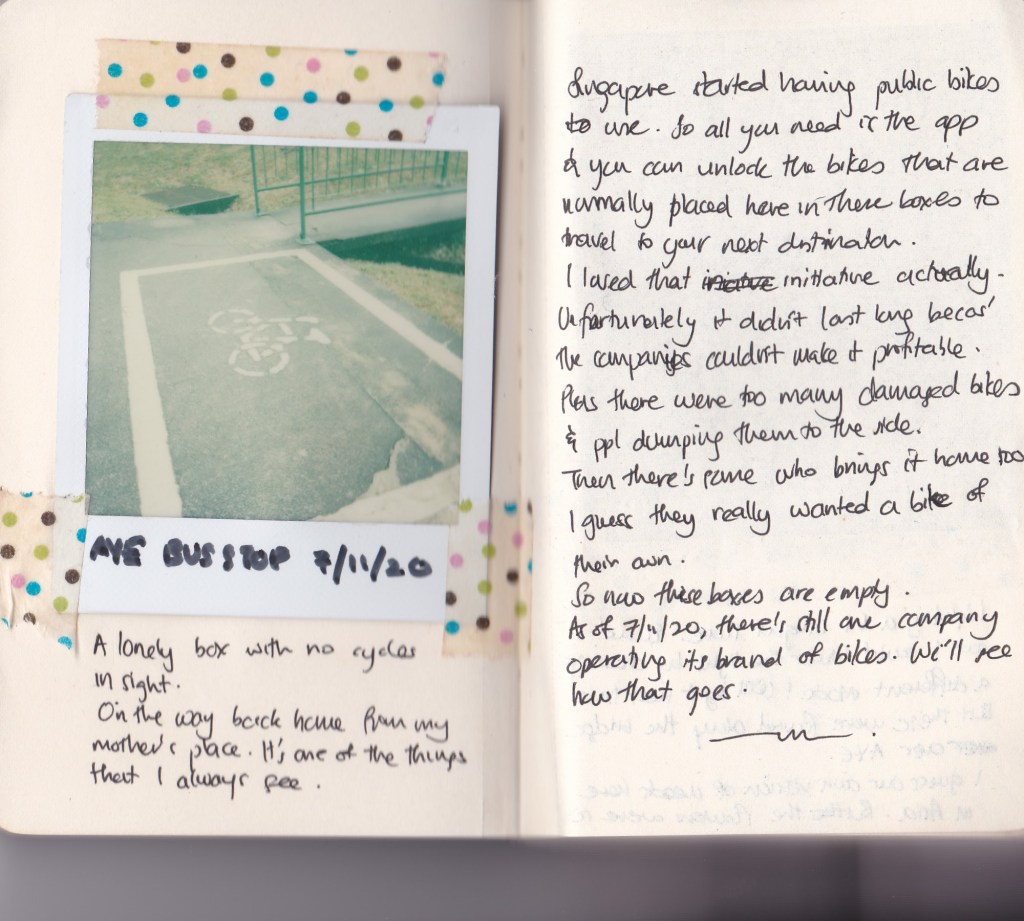 AYE BUS STOP 7/11/20
A lonely box with no cycles
in sight.
On the way back home from my
mother's place. It's one of the things
that I always see.
Singapore started having public bikes
to use. So all you need is the app
& you can unlock the bikes that are
normally placed here in these boxes to
travel to your next distination.
I loved that initiative actually.
Unfortunately it didn't last long becos'
the companies couldn't make it profitable.
Plus there were too many damaged bikes
& ppl dumping them to the side.
Then there's some who brings it home too
I guess they really wanted a bike of
their own.
So now these boxes are empty.
As of 7/11/20, there's still one company
operating its brand of bikes. We'll see
how that goes.